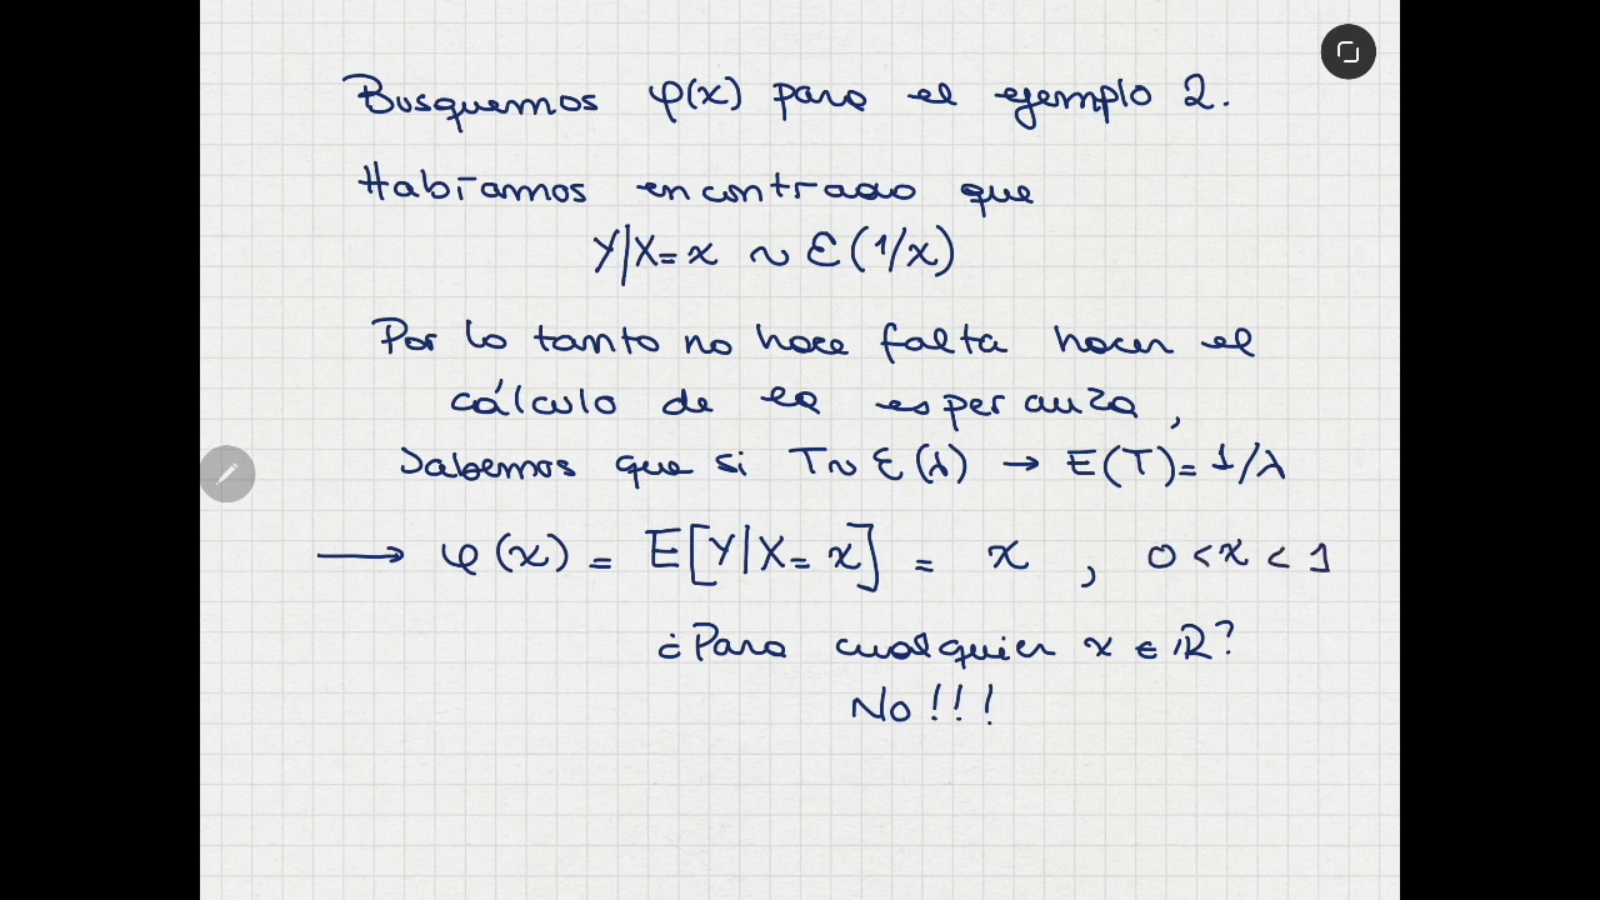 Busquemos φ(x) para el ejemplo 2.
Habíamos encontrado que
Y|X=x ~ Ɛ(1/x)
Por lo tanto no hace falta hacer el
cálculo de la esperanza,
Sabemos que si T~Ɛ(λ) → E(T)=1/λ
→ φ(x) = E[Y|X=x] = x , 0<x<1
¿Para cualquier x ∈ ℝ?
No!!!